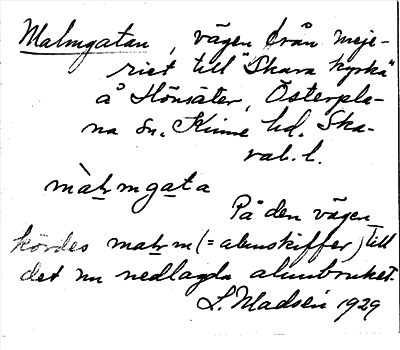 Malmgatan, vägen från meje-
riet till "Skara kyrka"
å Hönsäter, Österpla-
na Sn. Kinne hd. Ska-
rab. l.
màlmgata
På den vägen
kördes malm (= alunskiffer) till
det nu nedlagda alunbruket.
L. Madsén 1929